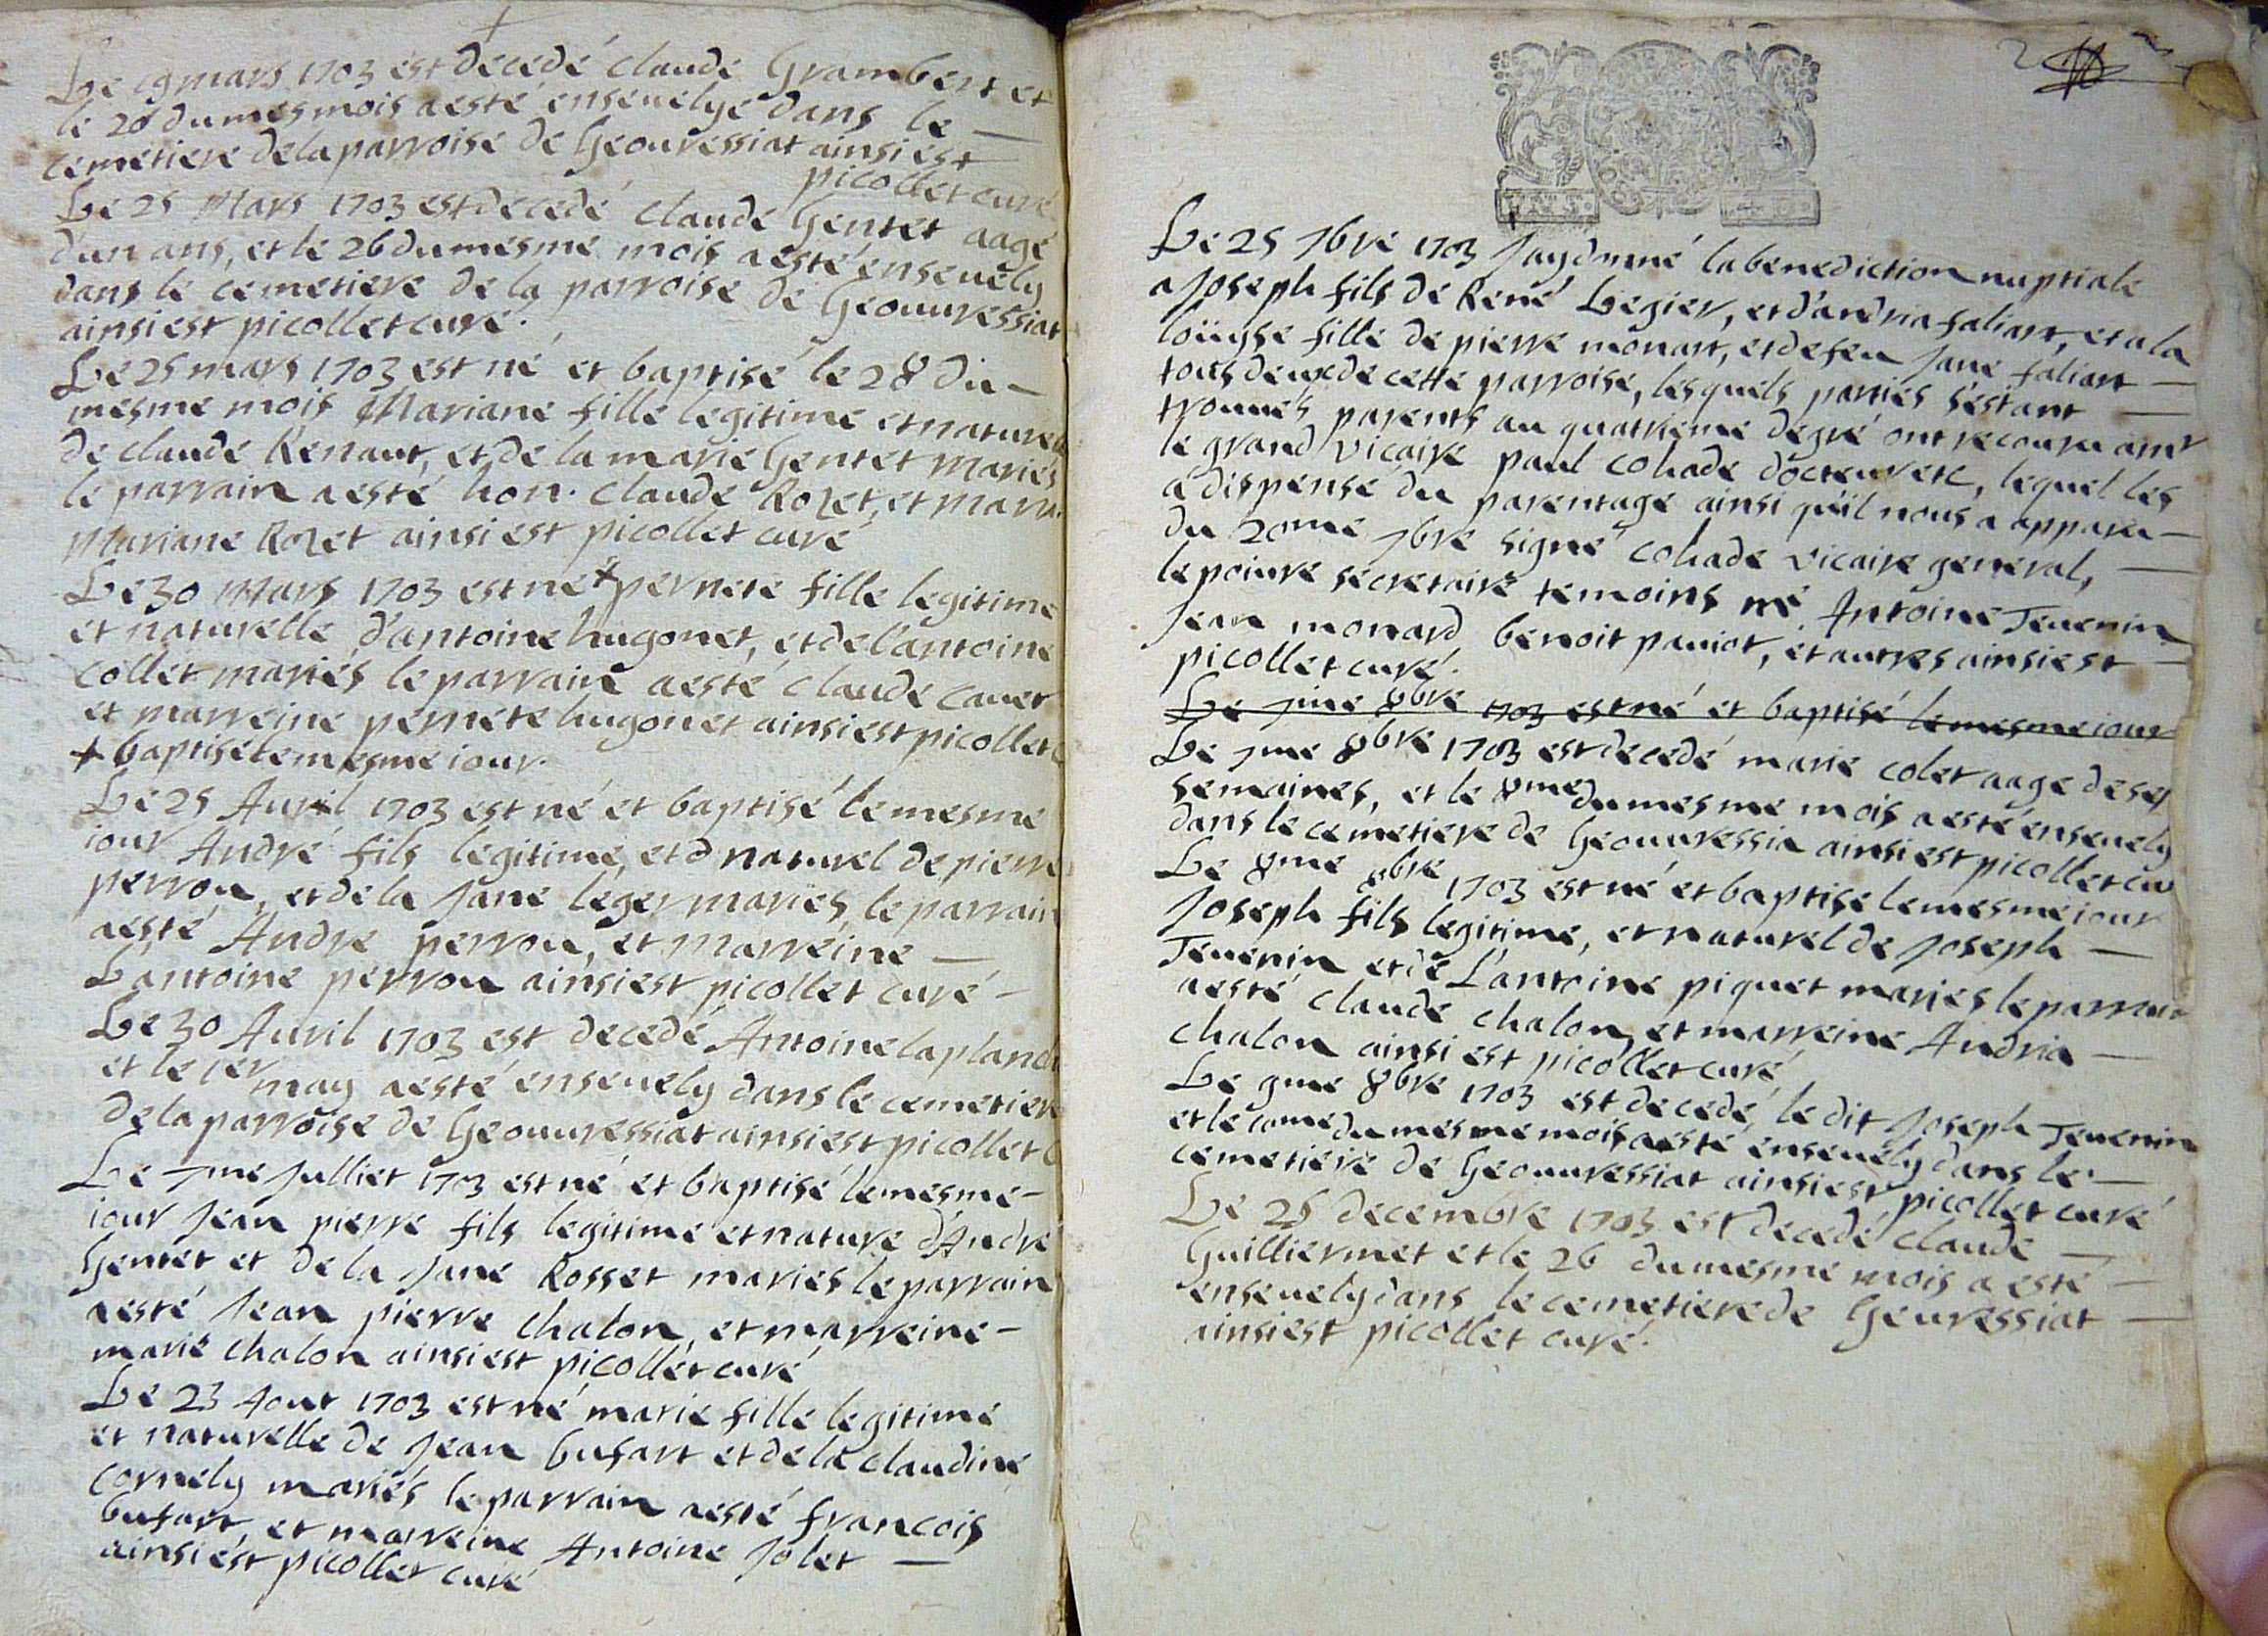 Le 19 mars 1703 est decedé claude Grambert et
le 20 du mesmois a esté enseuelye dans le —
cemetiere de la parroise de Geouressiat ainsi est
picollet curé
Le 25 Mars 1703 est decedé claude Gentet aagé
d'un ans, et le 26 du mesme mois a esté enseuely
dans le cemetiere de la parroise de Geouuressiat
ainsi est picollet curé.
Le 25 mars 1703 est né et baptisé le 28 du —
mesme mois Mariane fille legitime et naturelle
de claude Renaut, et de la marie Gentet mariés
le parrain a esté hon. claude Rozet, et marr.
Mariane Rozet ainsi est picollet curé
Le 30 Mars 1703 est né + pernete fille legitime
et naturelle d'antoine hugonet, et de l'antoine
collet mariés le parrain a esté claude cauet
et marreine pernete hugonet ainsi est picollet c
+ baptisé le mesme iour.
Le 25 Auril 1703 est né et baptisé le mesme
iour André fils legitime, et naturel de pierre
perrou, et de la Jane léger mariés, le parrain
a esté André perrou, et marreine —
L'antoine perrou ainsi est picollet curé —
Le 30 Auril 1703 est decedé Antoine laplanch
et le 1er may a esté enseuely dans le cemetiere
de la parroise de Geouuressiat ainsi est picollet c
Le 7me Julliet 1703 est né et baptisé le mesme —
iour Jean pierre fils legitime et nature d'André
Gentet et de la Jane Rosset mariés le parrain
a esté Jean pierre chalon, et marreine —
marie chalon ainsi est picollet curé
Le 23 Aout 1703 est né marie fille legitime
et naturelle de Jean bufart et de la claudine
cornely mariés le parrain a esté francois
bufart, et marreine Antoine Jolet —
ainsi est picollet curé
2
Le 25 7bre 1703 J'ay donné la benediction nuptiale
a Joseph fils de René Legier, et d'andria faliart, et a la
loüyse fille de pierre monart, et de feu Jane faliart —
tous deux de cette parroise, lesquels parties s'estant —
trouués parents au quatrieme degré ont recouru a mr
le grand vicaire paul cohade docteur etc, lequel les
a dispensé du parentage ainsi qu'il nous a apparu —
du 20me 7bre signé cohade vicaire general, —
lepoiure secretaire temoins me Antoine Teuenin
Jean monard benoit pauiot, et autres ainsi est —
picollet curé.
Le 7me 8bre 1703 est né et baptisé le mesme iour
Le 7me 8bre 1703 est decedé marie colet aage de sep
semaines, et le 8me du mesme mois a esté enseuely
dans le cemetiere de Geouuressia ainsi est picollet cu
Le 8me 8bre 1703 est né et baptisé le mesme iour
Joseph fils legitime, et naturel de Joseph —
Teuenin et de L'antoine piquet mariés le parrain
a esté claude chalon, et marreine Andria —
chalon ainsi est picollet curé
Le 9me 8bre 1703 est decedé, le dit Joseph Teuenin
et le 10me du mesme mois a esté enseuely dans le —
cemetiere de Geouuressiat ainsi est picollet curé
Le 25 decembre 1703 est decedé claude —
Guilliermet et le 26 du mesme mois a esté —
enseuely dans le cemetiere de Geuressiat —
ainsi est picollet curé.